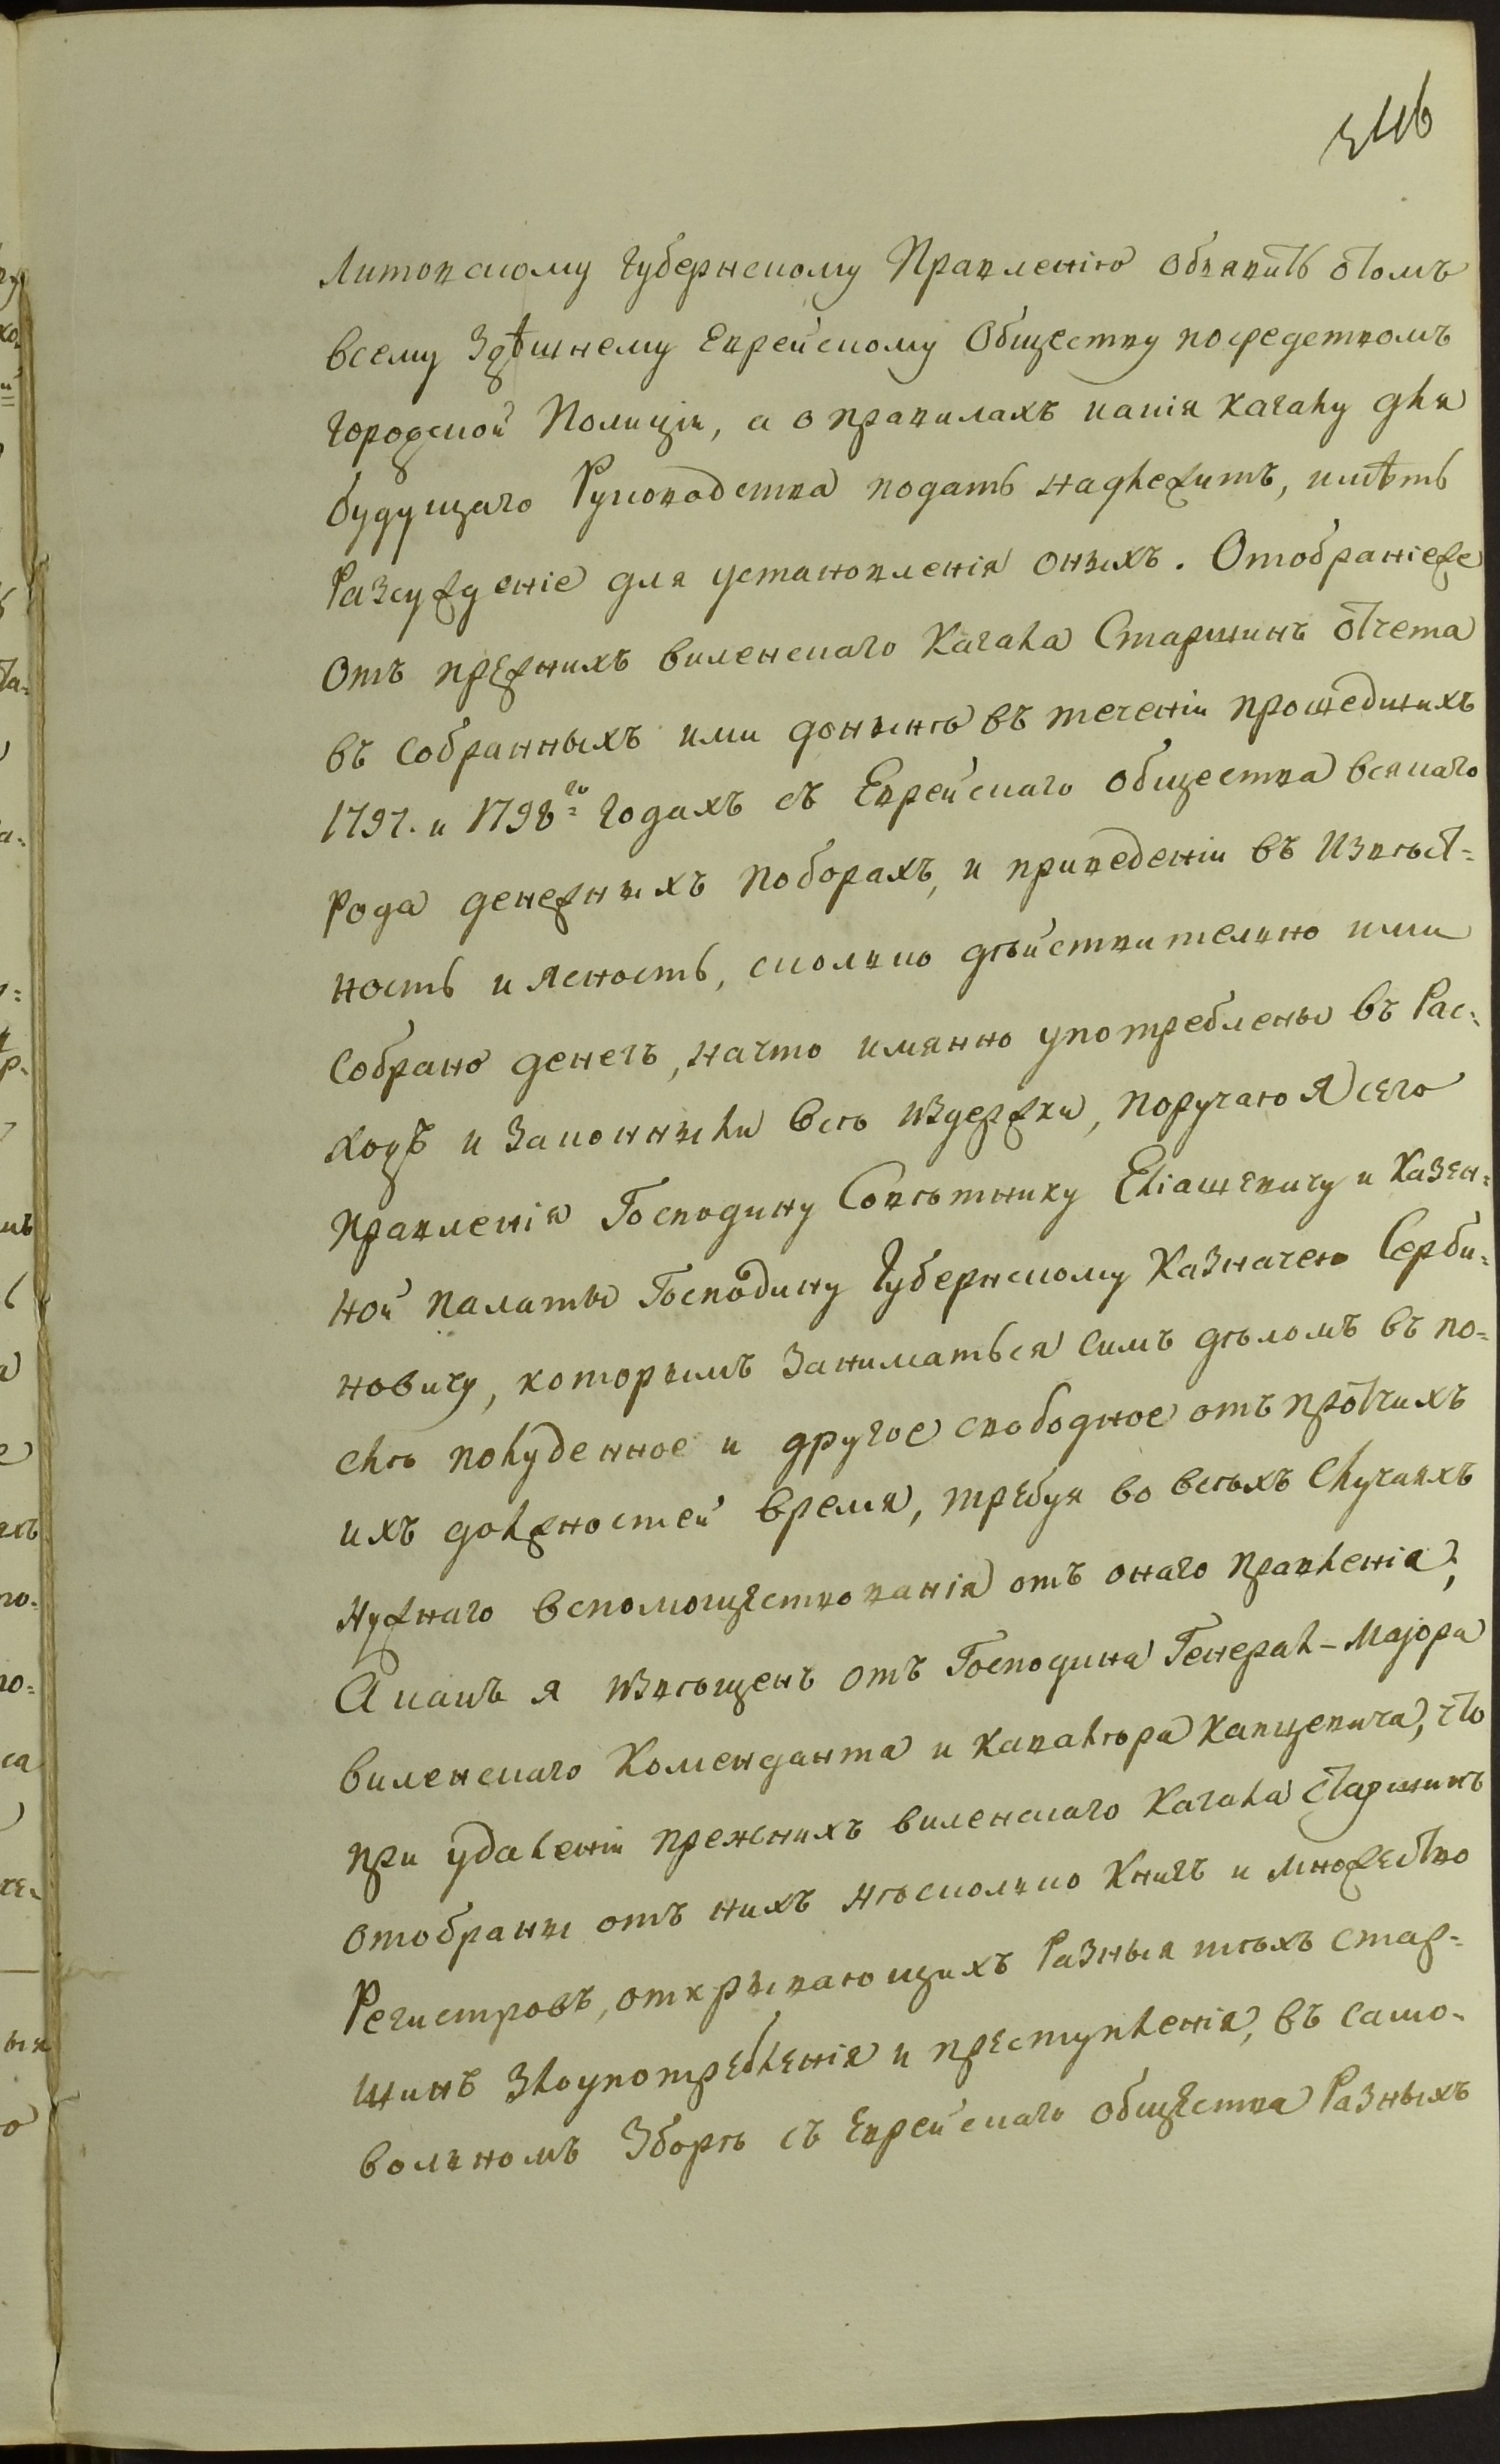 346
Литовскому Губернскому Правленію обьявить отомъ
всему Здѣшнему Еврейскому Обществу посредствомъ
городской Полиціи, а о правилахъ какія кагалу для
будущаго Руководства подать надлежитъ, имѣть
Разсужденіе для установленія оныхъ. Отобраніеже
отъ прежнихъ виленскаго Кагала Старшинъ отчета
въ собранныхъ ими донынѣ въ теченіи прошедшихъ
1797. и 1798го годахъ съ Еврейскаго общества всякаго
Рода денежныхъ поборахъ, и приведеніи въ Извѣст=
ность и ясность, сколько дѣйствительно ими
собрано денегъ, начто имянно употреблены въ Рас=
ходъ и законныли всѣ издержки, поручаю я сего
Правленія Господину Совѣтнику Еліашевичу и Казен=
ной палаты Господину Губернскому Казначею Серби=
новичу, которымъ заниматься симъ дѣломъ въ по=
слѣ полуденное и другое свободное отъ протчихъ
ихъ должностей время, требуя во всѣхъ случаяхъ
нужнаго вспомоществованія отъ онаго правленія;
А какъ я извѣщенъ отъ Господина Генерал-Маіора
виленскаго Коменданта и кавалѣра Капцевича, что
при удаленіи прежнихъ виленскаго Кагала старшинъ
отобраны отъ нихъ нѣсколько Книгъ и множество
Регистровъ, открывающихъ Разныя тѣхъ стар=
шинъ злоупотребленія и преступленія, въ само=
вольномъ Зборѣ съ Еврейскаго общества Разныхъ